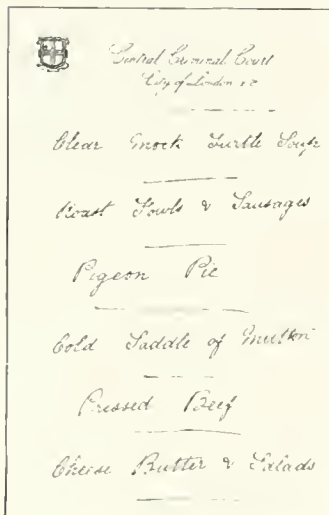 Central Criminal Court
City of London E.C.
Clear Mock Turtle Soup
Roast Fowls & Sausages
Pigeon Pie
Cold Saddle of Mutton
Pressed Beef
Cheese Butter & Salads